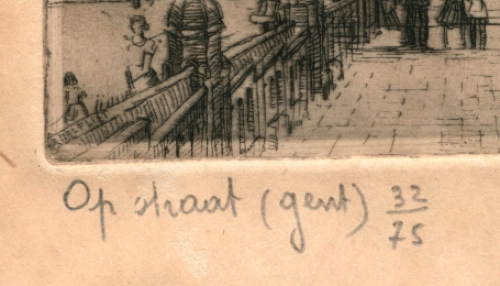 Op straat (gent) 32/75